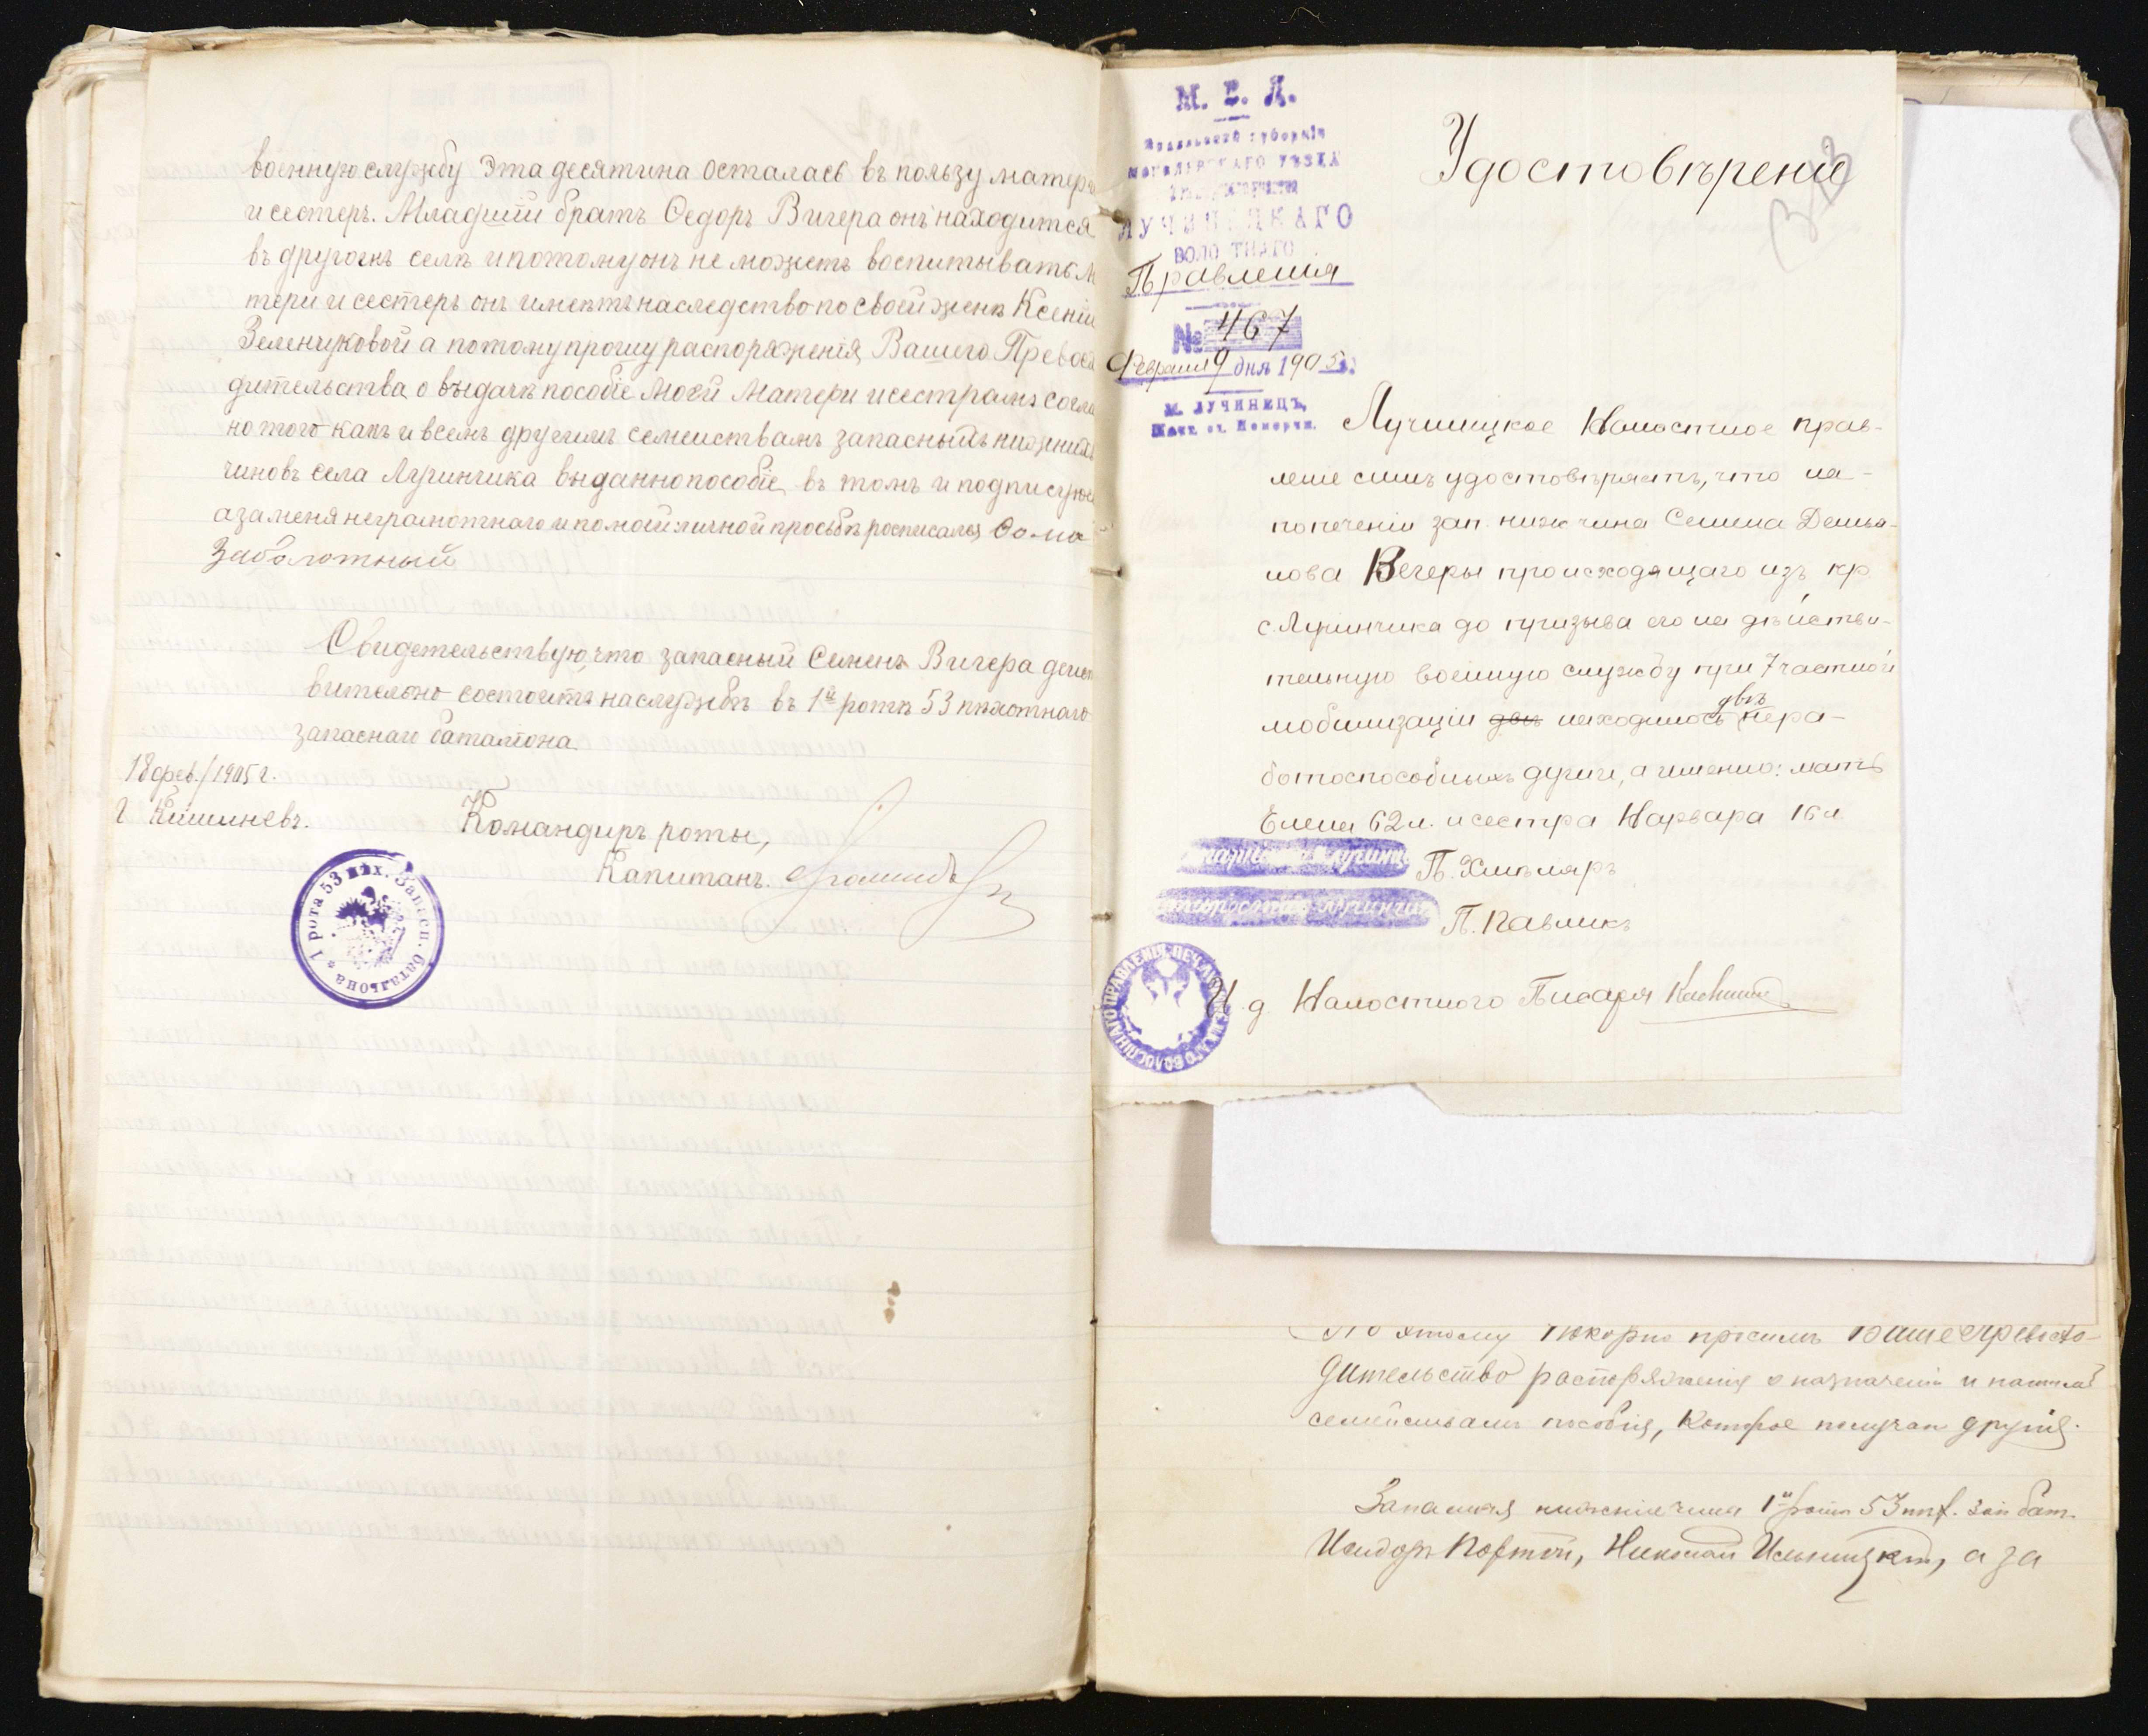 военную службу Эта десятина осталась въ пользу матери
и сестеръ. Младшій братъ Федоръ Вигера онъ находится
въ другомъ селѣ и потому онъ не можетъ воспитывать м
тери и сестеръ онъ имѣетъ наслѣдство по своей женѣ Ксеніи
Зеленчуковой а потому прошу распоряженія Вашего Превосх
дительства о выдачѣ пособіе моей Матери и сестрамъ согла
но того какъ и всемъ другимъ семействамъ запасныхъ нижнихъ
чиновъ села Лучинчика выданно пособіе, въ томъ и подписуюсь
а за меня неграмотнаго и по моей личной просьбѣ росписался Фома
Заболотный
Свидетельствую, что запасный Семенъ Вигера дейст
вительно состоитъ на службѣ въ 1й ротѣ 53 пѣхотнаго
запаснаго баталіона
18 фев./1905 г.
г Кишиневъ.
Командиръ роты,
Капитанъ
1 рота 53 пѣх. Запасн. баталіона
М. В. Д.
Подольской губерніи
МОГИЛЕВСКАГО УѢЗДА
ЛУЧИНЕЦКАГО
ВОЛОСТНАГО
Правленія
№ 467
Февраля 9 дня 1905 г.
м. ЛУЧИНЕЦЪ,
Удостовѣреніе
Лучинецкое Волостное прав-
леніе симъ удостовѣряетъ, что на-
попеченіи зап. ниж чина Семена Демья-
нова Вечеры происходящаго изъ кр
с. Лучинчика до призыва его на дѣйстви-
тельную военную службу при 7 частной
мобилизаціи двѣ находилось двѣ нера-
ботоспособныхъ души, а именно: мать
Елена 62 л. и сестра Варвара 16 л
П.
П. Павликъ
И. д. Волостного Писаря
По этому покорно просимъ Ваше Превосхо-
дительство распоряженія о назначеніи и нашимъ
семействамъ пособія, которое получаю другія.
Запасныя нижніе чины 1й роты 53 пѣх. зап бат.
Исидоръ Николай Ильницкій, а за